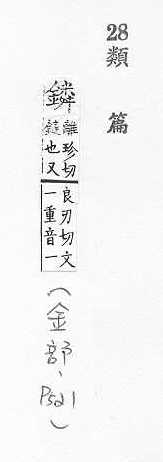 28
類篇
鏻
離珍切
也又
良刃切文
一重音一
(金部、P521)